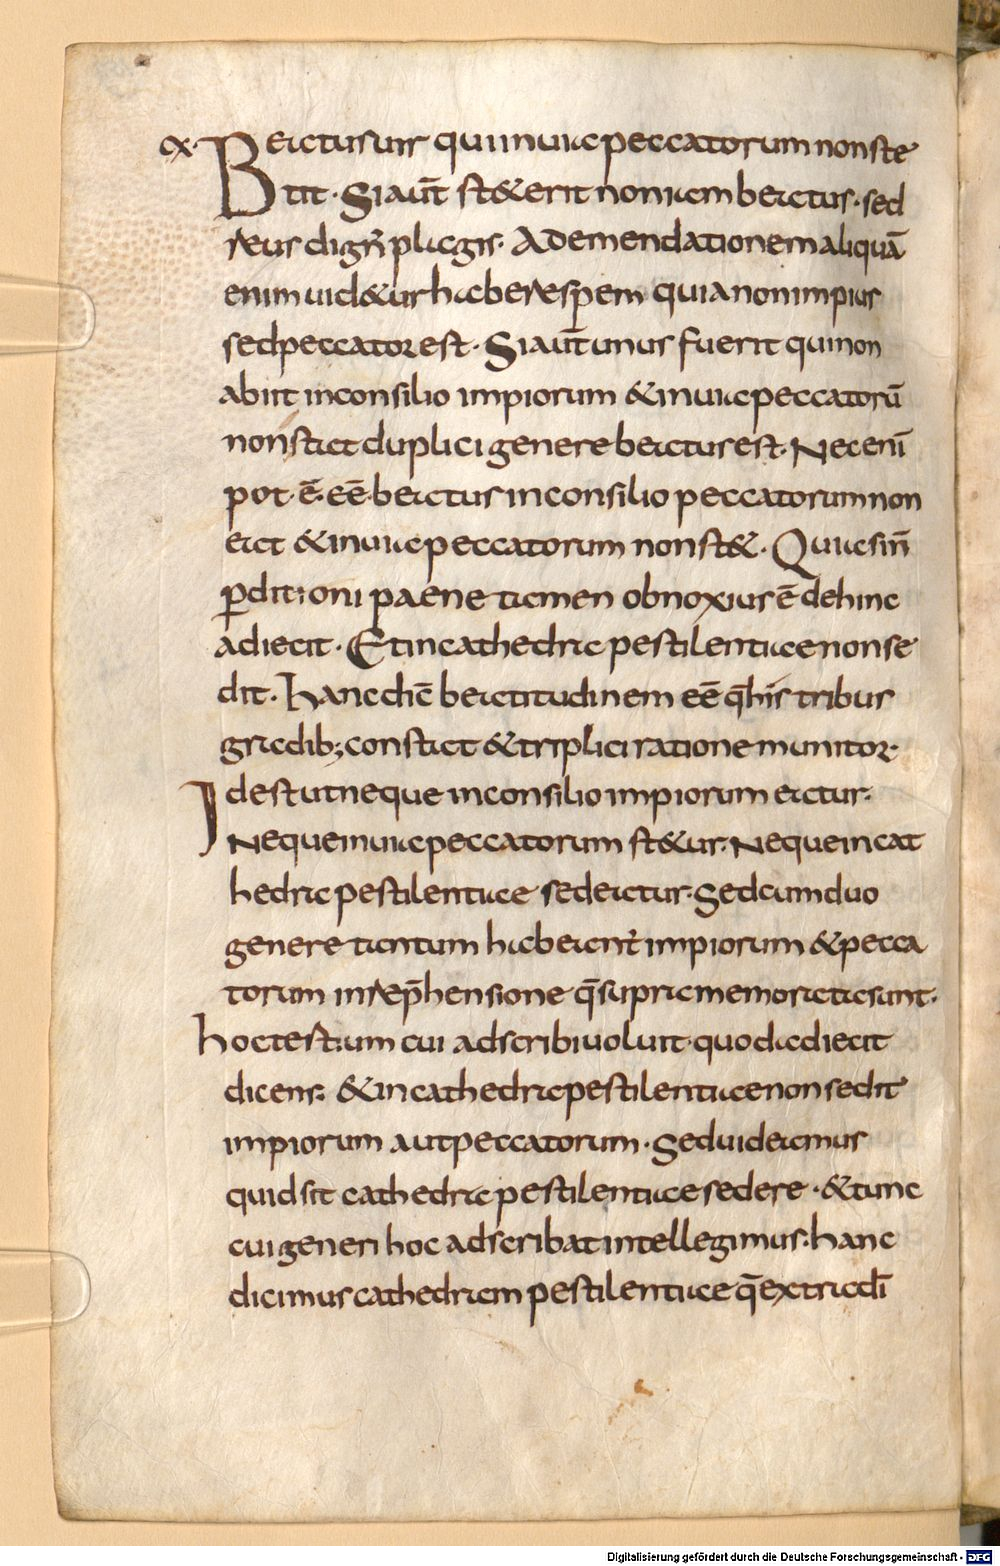 α. Beatus uir qui in uia peccatorum non ste
tit. Si aut̄ st&erit non iam beatus. sed
reus dign̄ plagis. Ad emendationem aliquā
enim uid&ur habere spem quia non impius
sed peccator est. Si aut̄ unus fuerit qui non
abiit in consilio impiorum & in uia peccatorū
non stat duplici genere beatus est. Nec enī
pot. ē. eē. beatus in consilio peccatorum non
eat & in uia peccatorum non st&. Qui a sin̄
p̱ditioni paene tamen obnoxius ē dehinc
adiecit. Et in cathedra pestilentiae non se
dit. Hanc dic̄ beatitudinem eē q̄ his tribus
gradib; constat & triplici ratione munitor.
Id est ut neque in consilio impiorum eatur.
Neque in uia peccatorum st&ur. Neque in cat
hedra pestilentiae sedeatur. Sed cum duo
genere tantum habeant impiorum & pecca
torum in rep̄hensione q̄ supra memorata sunt.
hoc tertium cui adscribi uoluit quod adiecit
dicens. & in cathedra pestilentiae non sedit
impiorum aut peccatorum. Sed uideamus
quid sit cathedra pestilentiae sedere. & tunc
cui generi hoc adscribat intellegimus. hanc
dicimus cathedram pestilentiae q̄ extra dī
Digitalisierung gefördert durch die Deutsche Forschungsgemeinschaft - DFG